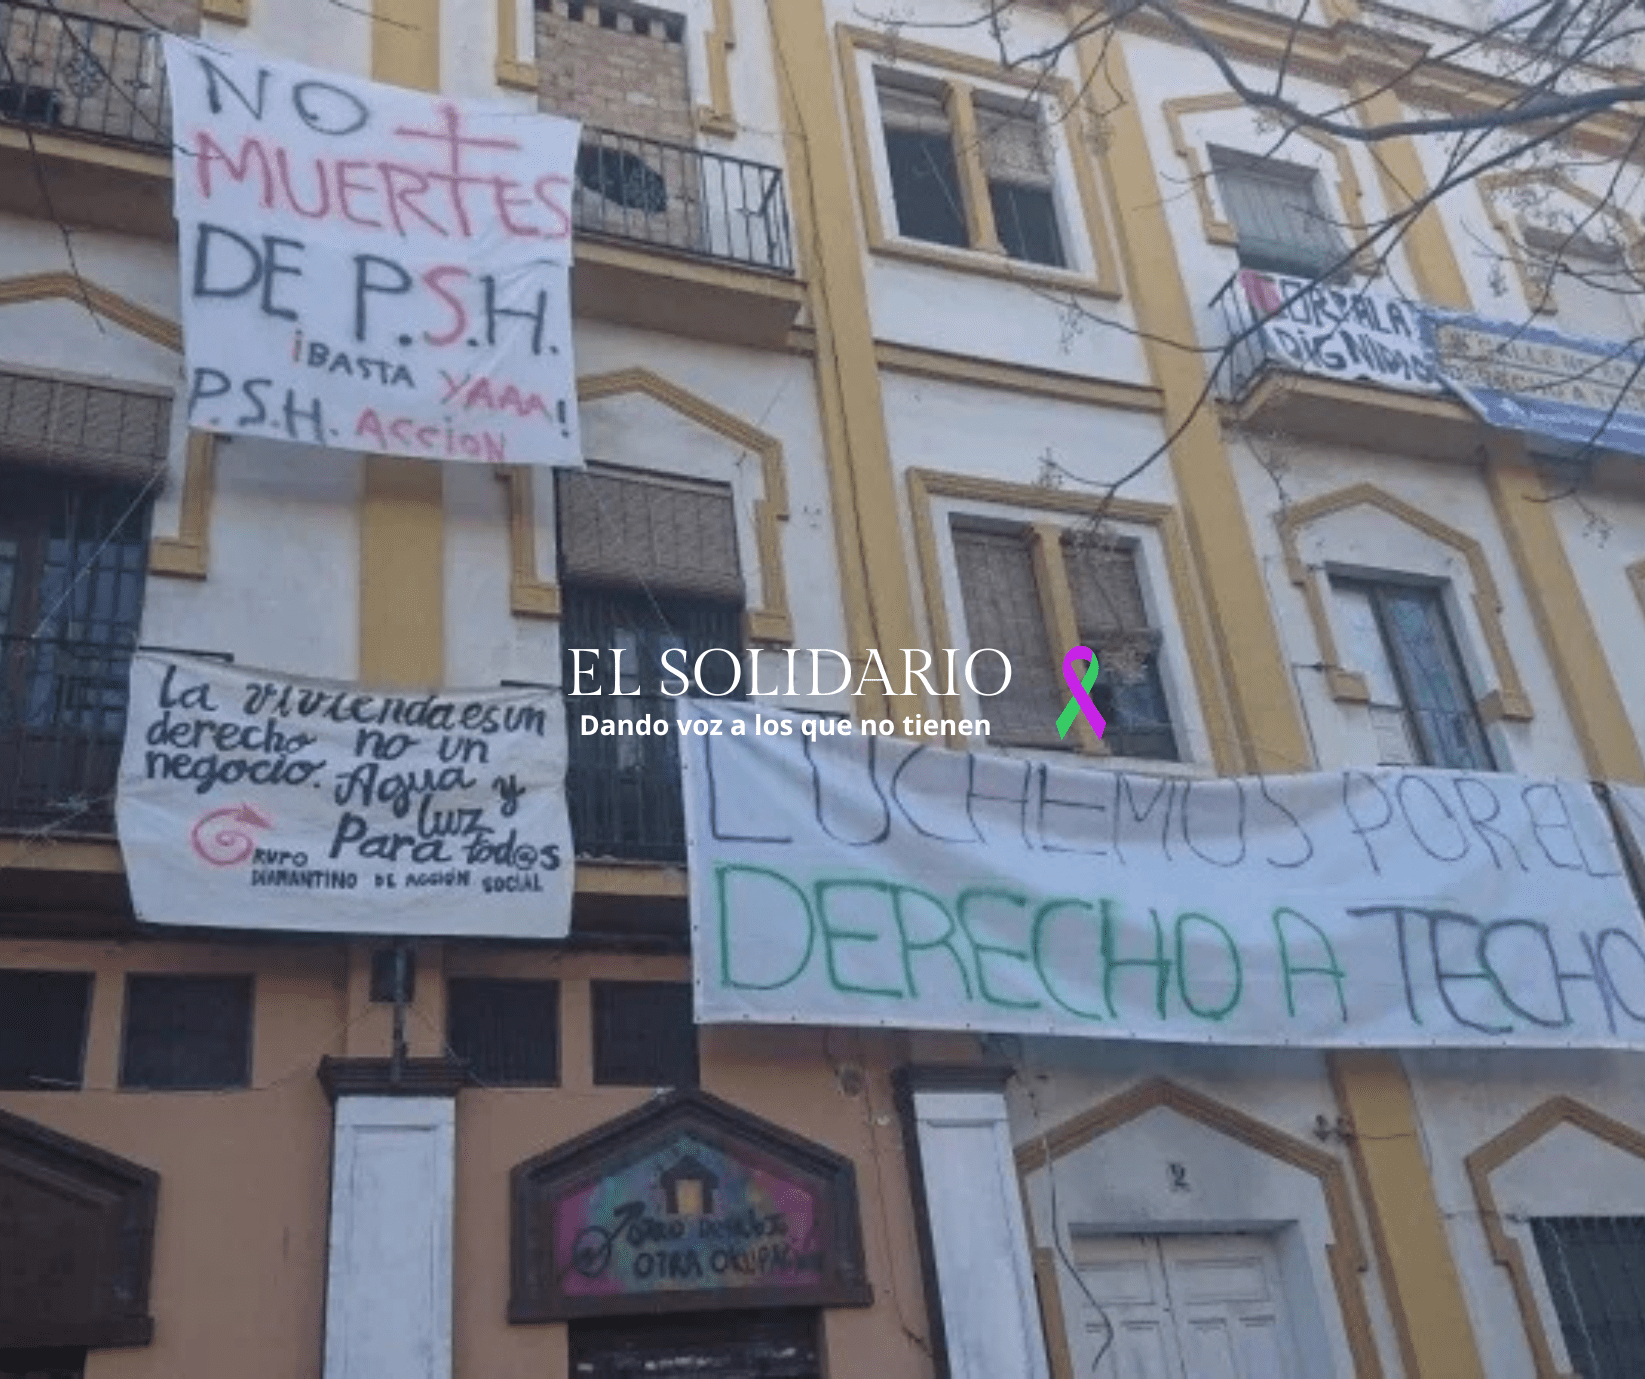 NO
MUERTES
DE P.S.H.
¡BASTA YAAA!
P.S.H. ACCION
POR LA
DIGNIDAD
La vivienda es un
derecho no un
negocio. Agua y
luz
Para tod@s
GRUPO
DIAMANTINO DE ACCIÓN SOCIAL
EL SOLIDARIO
Dando voz a los que no tienen
LUCHEMOS POR EL
DERECHO A TECHO
2
OTRA